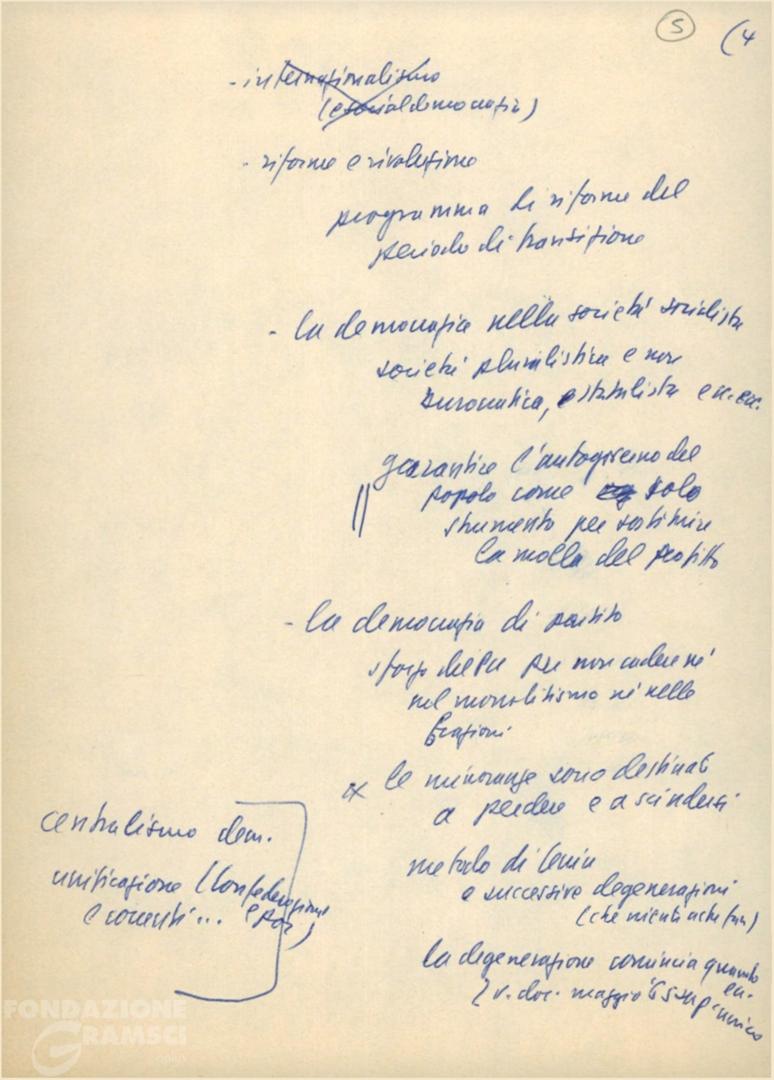 5 (4
- internazionalismo
(e socialdemocrazia)
- riforme e rivoluzione
programma di riforme del
periodo di transizione
- la democrazia nella società socialista
società pluralistica e non
burocratica, e statalista ecc. ecc.
garantire l'autogoverno del
popolo come solo
strumento per sostituire
la molla del profitto
- la democrazia di partito
sforzo del PCI per non cadere né
nel monolitismo né nelle
frazioni
le minoranze sono destinate
a perdere e a scindersi
centralismo dem.
unificazione (confederazione
e correnti... e poi)
metodo di Lenin
e successive degenerazioni
(che
la degenerazione comincia quando
v. doc. maggio
FONDAZIONE
GRAMSCI